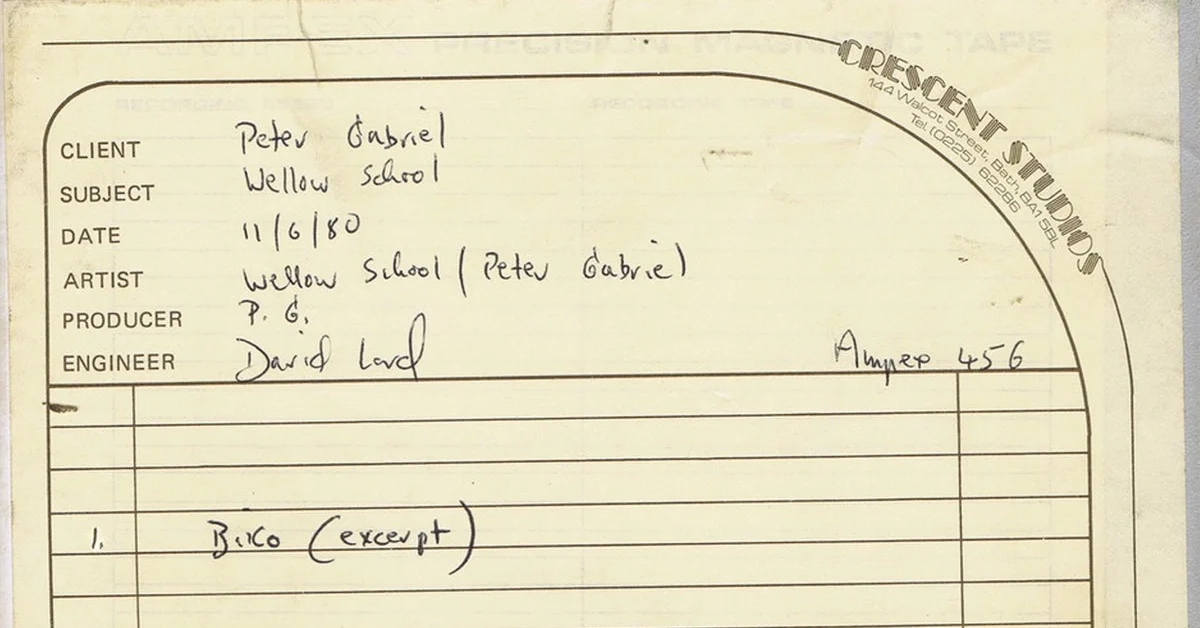 AMPEX PRECISION MAGNETIC TAPE
CRESCENT STUDIOS
144 Walcot Street, Bath, BA1 5BL
Tel. (0225) 62286
CLIENT Peter Gabriel
SUBJECT Wellow School
DATE 11/6/80
ARTIST Wellow School / Peter Gabriel
PRODUCER P. G.
ENGINEER David Lord
Ampex 456
1. Biko (excerpt)